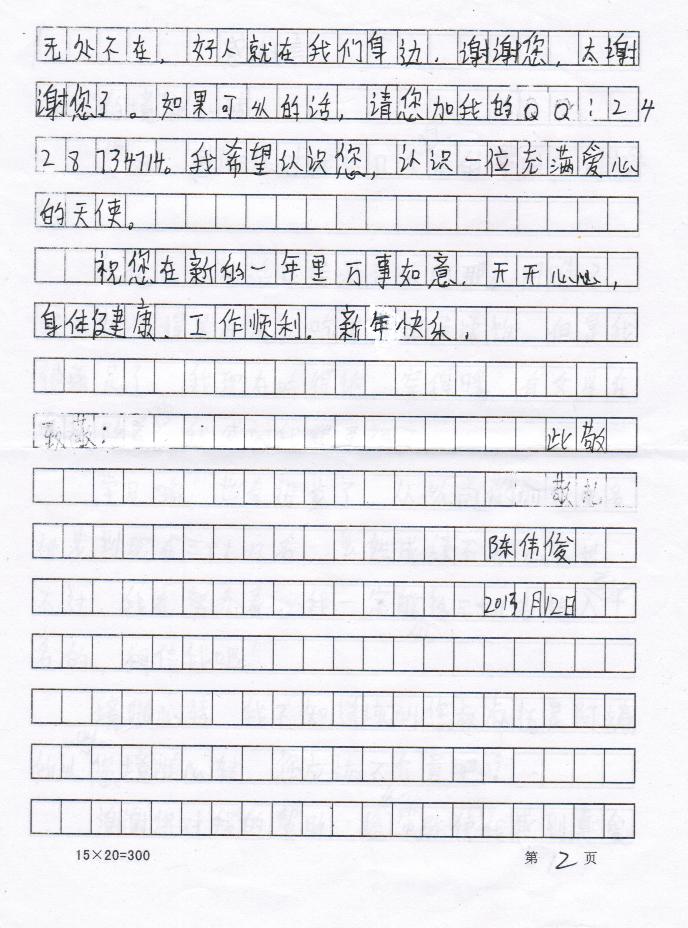 无处不在，好人就在我们身边．谢谢您，太谢
谢您了。如果可以的话，请您加我的QQ：24
28734714。我希望认识您，认识一位充满爱心
的天使。
祝您在新的一年里万事如意．天天开心，
身体健康、工作顺利．新年快乐．
此敬
敬礼
陈伟俊
2013年1月12日
15×20=300
第2页